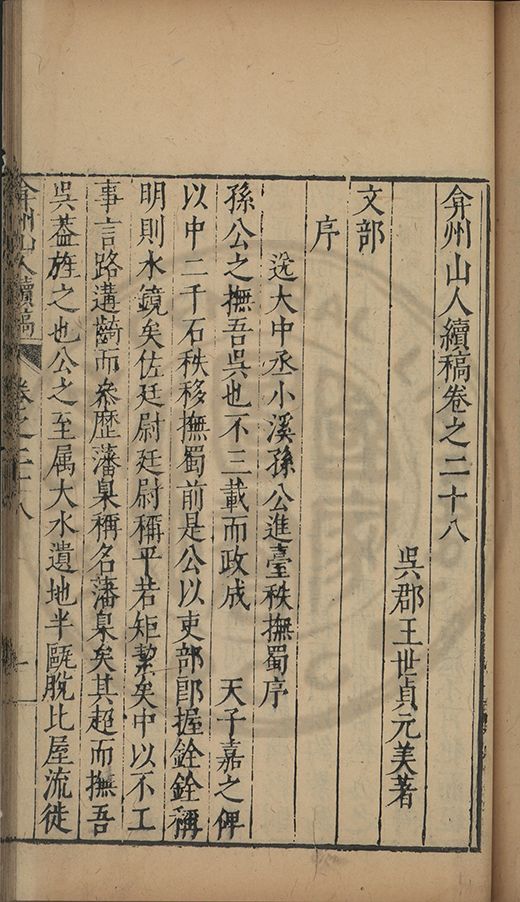 弇州山人續稿卷之二十八
吳郡王世貞元美著
文部
序
送大中丞小溪孫公進臺秩撫蜀序
孫公之撫吾吳也不三載而政成 天子嘉之俾
以中二千石秩移撫蜀前是公以吏部郎握銓銓稱
明則水鏡矣佐廷尉廷尉稱平若矩絜矣中以不工
事言路遘齮而叅歷藩臬稱名藩臬矣其超而撫吾
吳葢旌之也公之至属大水遺地半甌脫比屋流徙
弇州山人續稿 卷之二十八 一